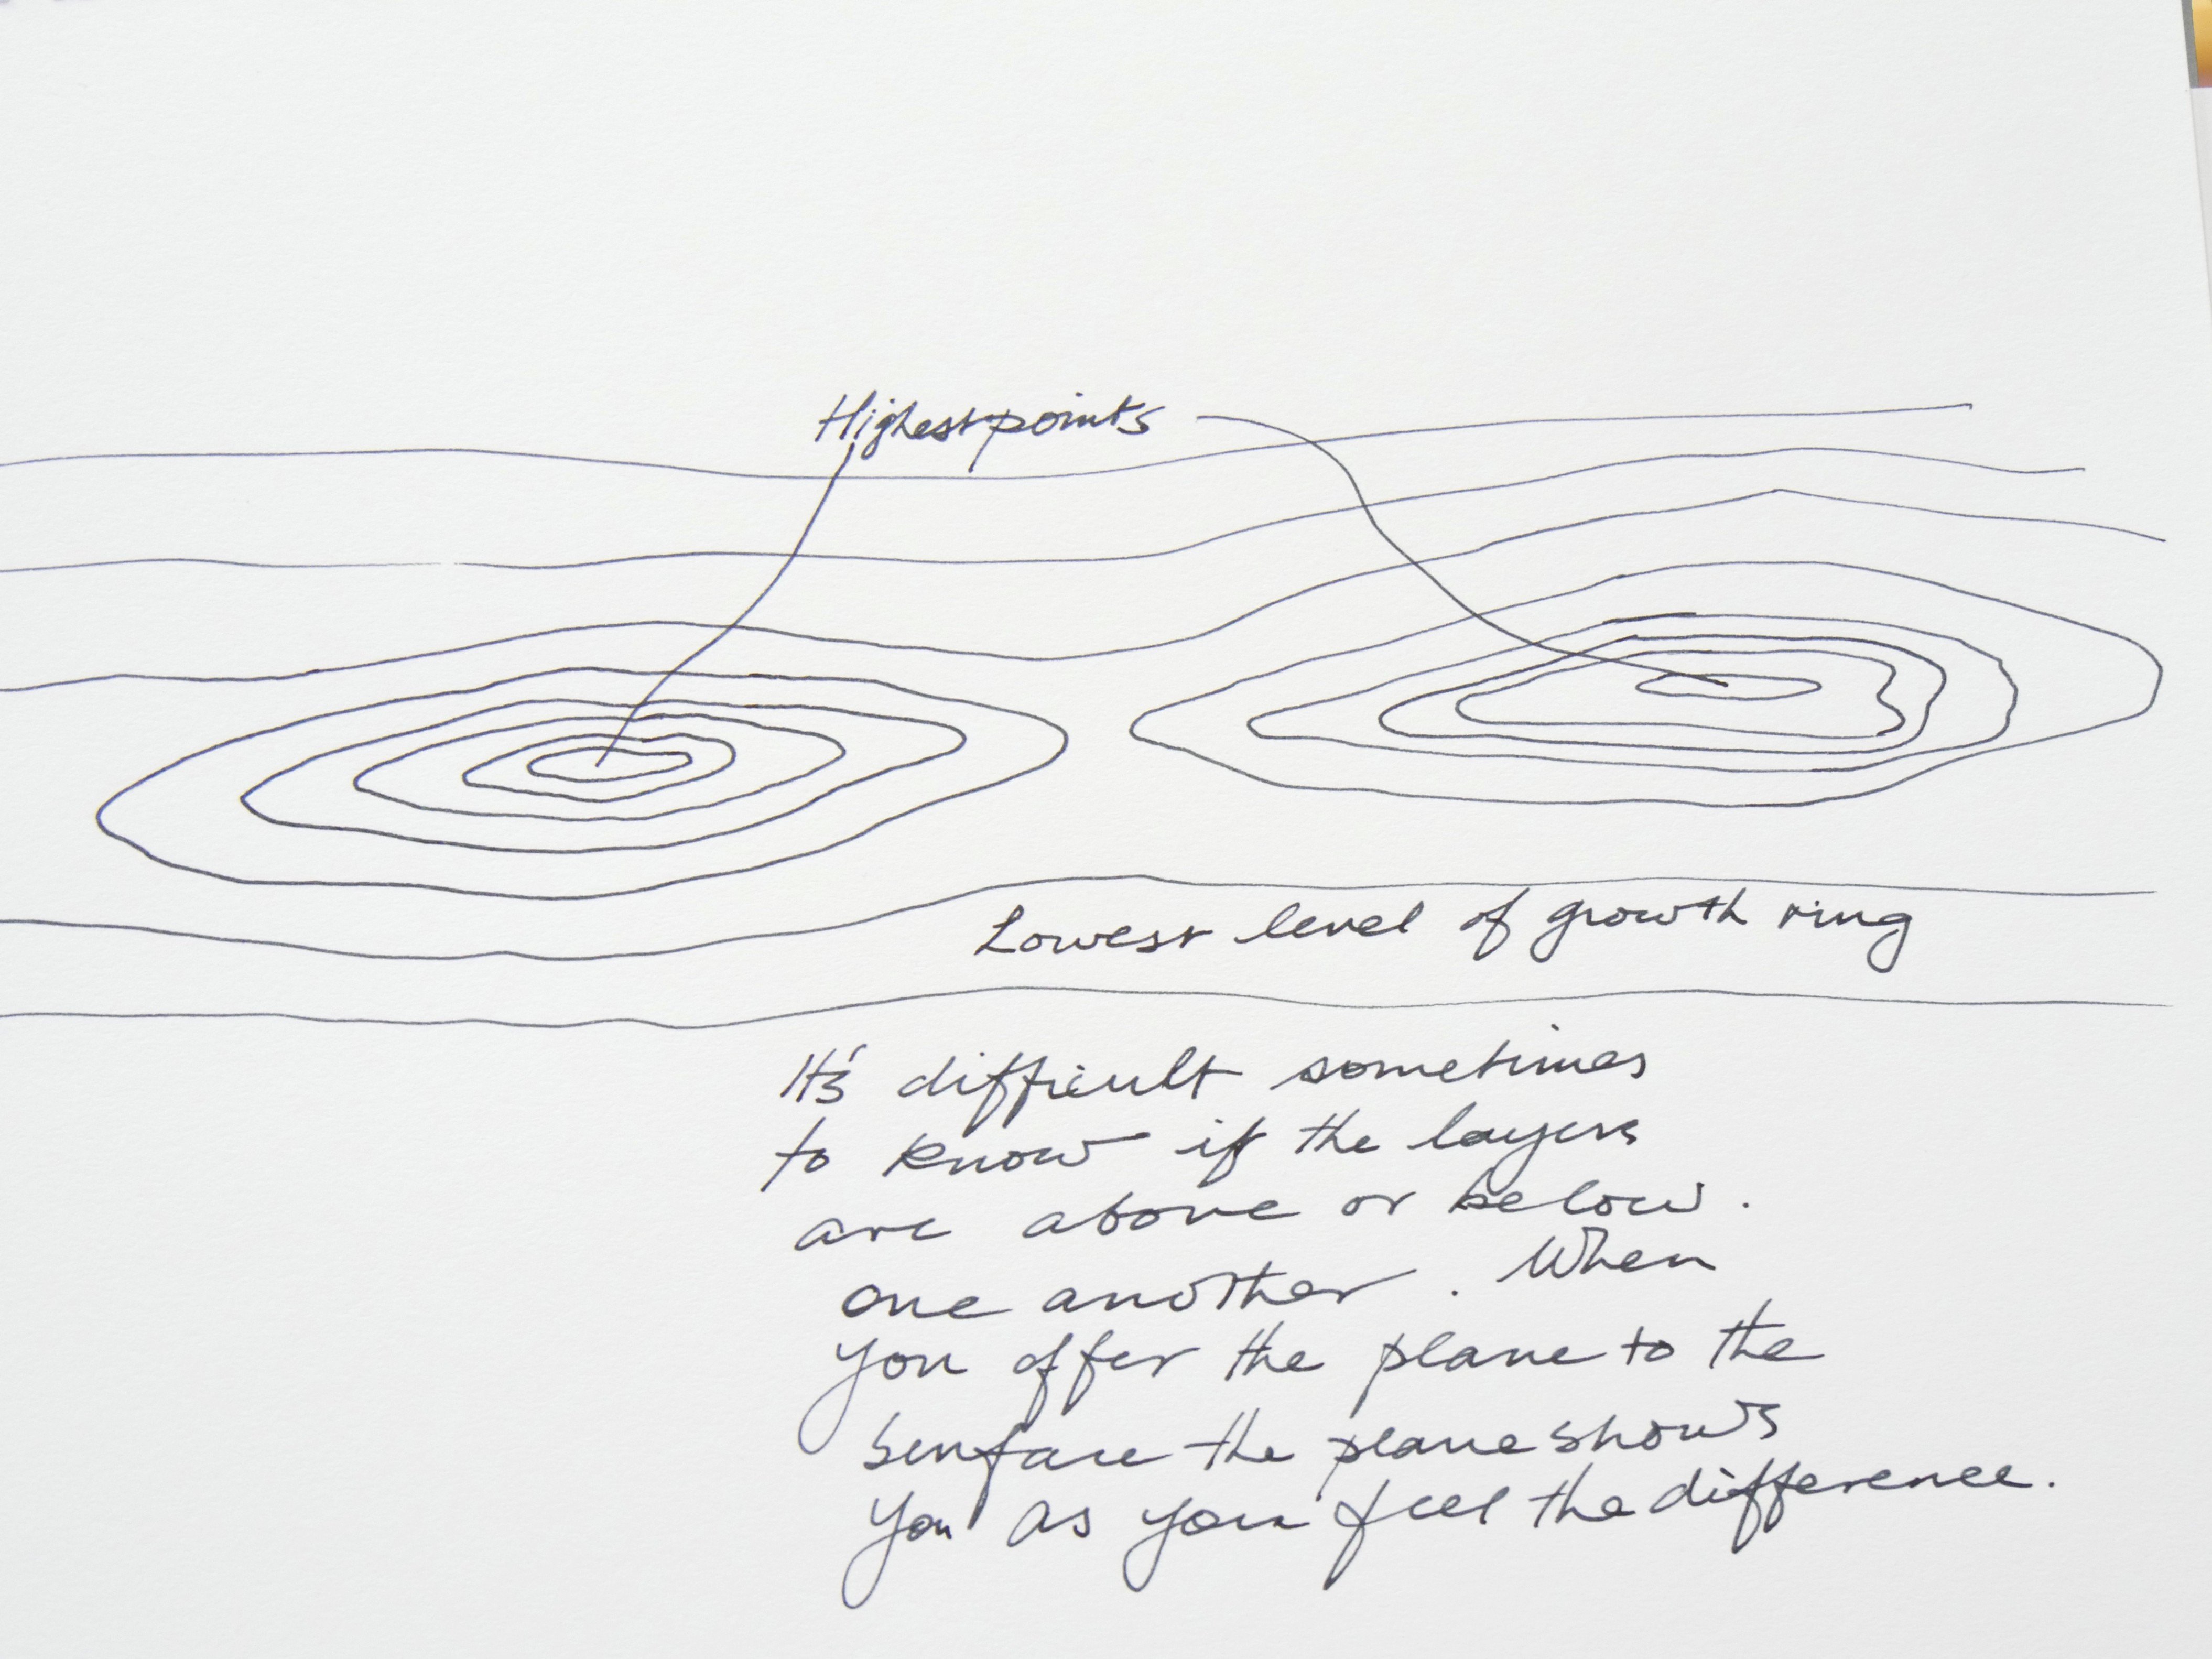 Highest points
Lowest level of growth ring
It's difficult sometimes
to know if the layers
are above or below.
one another. When
you offer the plane to the
surface the plane shows
you as you feel the difference.